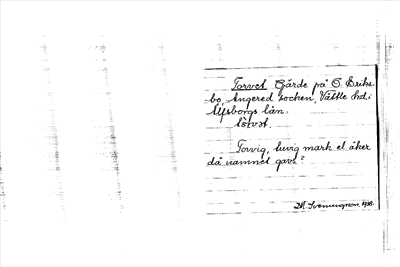 Torvet Gärde på O. Eriks-
bo, Angered socken, Vättle hd.
Älfsborgs län.
tòrvət.
Torvig, tuvig mark el åker
då namnet gavs?
M. Svenungson 1938